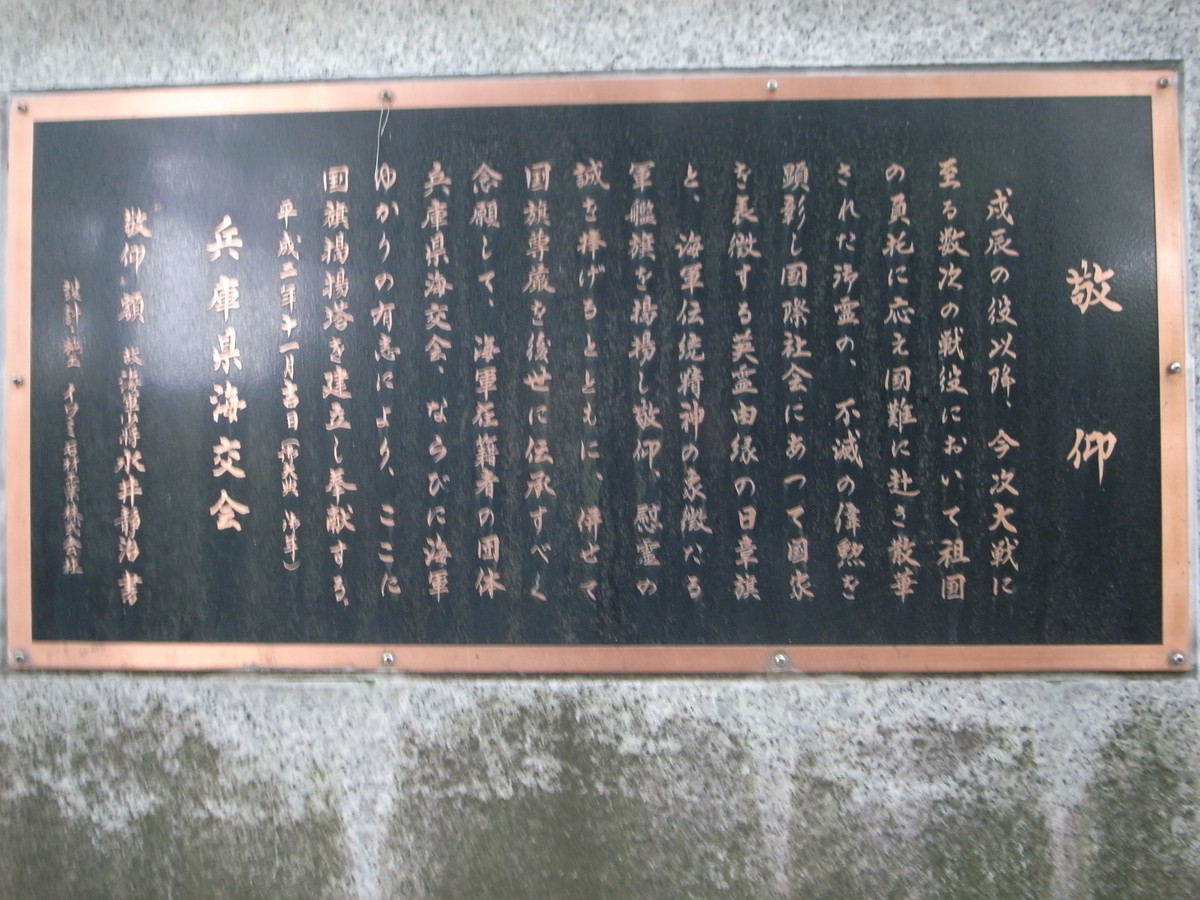 敬仰
戊辰の役以降、今次大戦に
至る数次の戦役において祖国
の負托に応え国難に赴き散華
された御霊の、不滅の偉勲を
顕彰し国際社会にあって国家
を表徴する英霊由縁の日章旗
と、海軍伝統精神の象徴たる
軍艦旗を掲揚し敬仰、慰霊の
誠を捧げるとともに、併せて
国旗尊厳を後世に伝承すべく
念願して、海軍在籍者の団体
兵庫県海交会、ならびに海軍
ゆかりの有志により、ここに
国旗掲揚塔を建立し奉献する。
平成二年十一月吉日
兵庫県海交会
敬仰 願 海軍 水井静治書
設計・ イヅミ石材工業株式会社